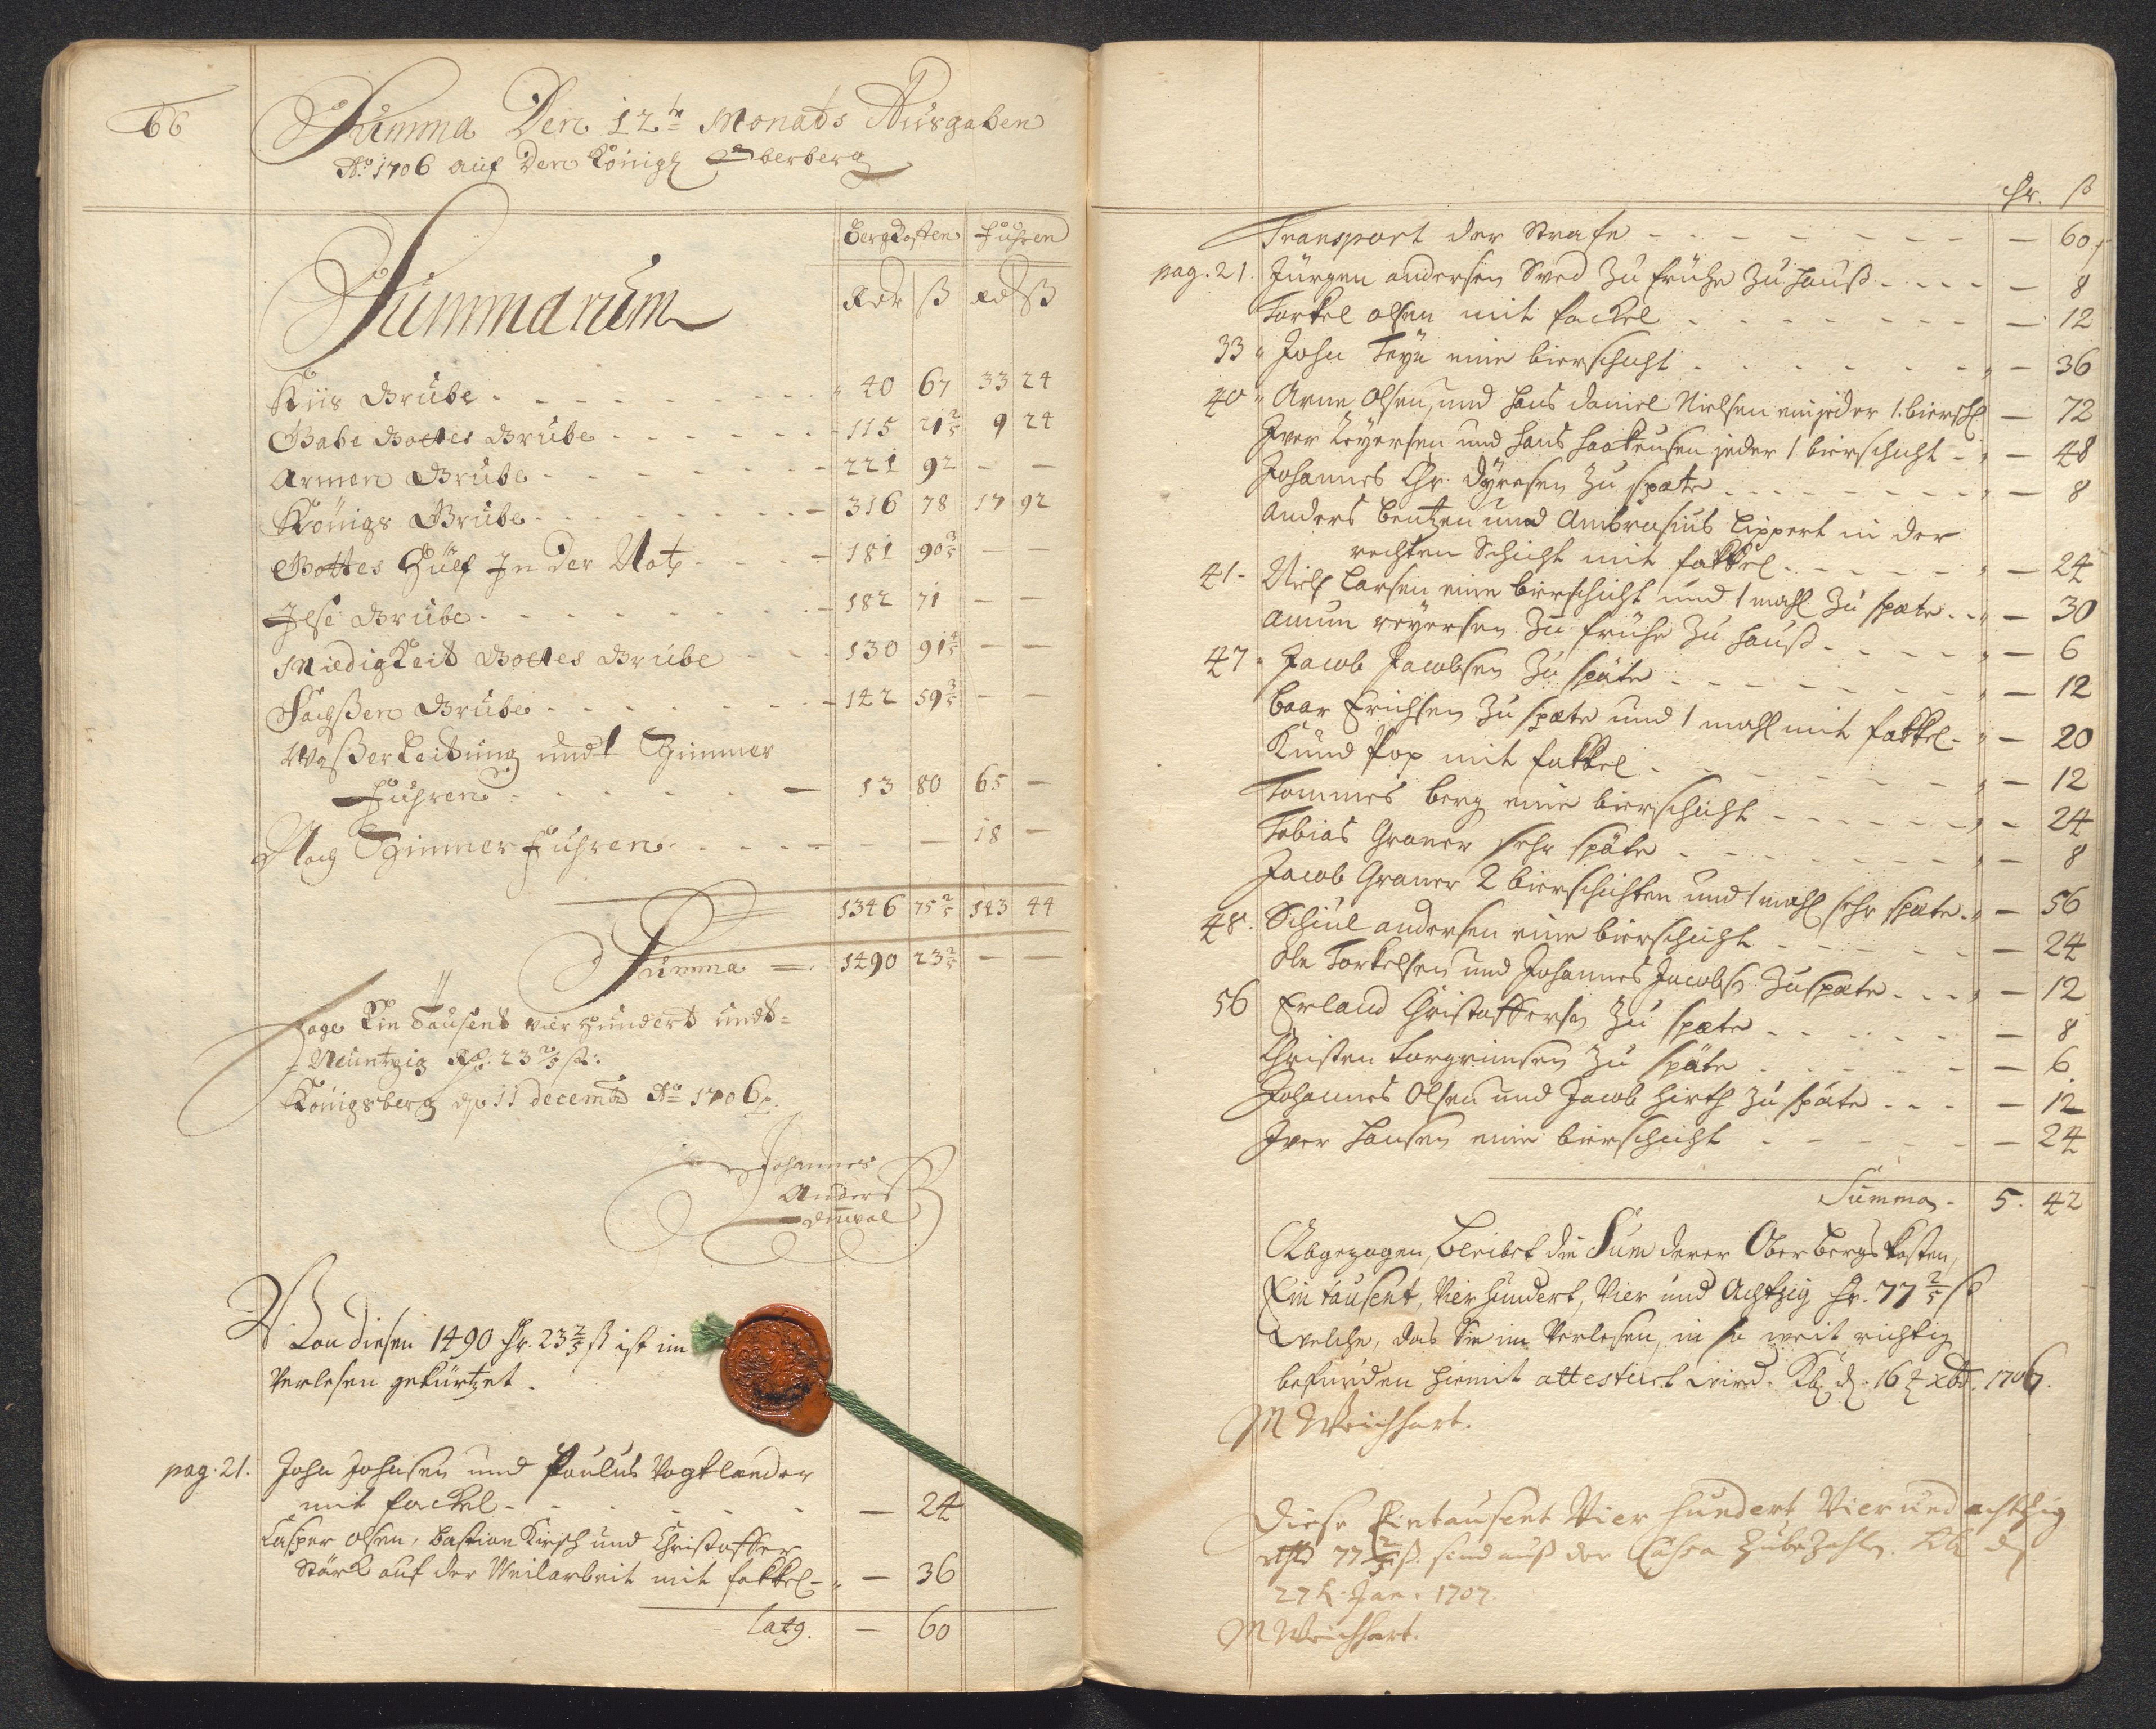 66
Summa Der 12te Monats Ausgaben
Ao 1706 auf Den Königl Oberberg
BergKosten Fuhren
Summarum
Rdr ß Rd ß
Kiis Grube - 40 67 33 24
Gabe Gottes Grube - 115 21 2/5 9 24
Armen Grube - 221 92 - -
Königs Grube - 316 78 17 92
Gottes Hülf In Der Noth - 181 90 3/5 - -
Grube - 182 71 - -
Miedigkeit Gottes Grube - 130 91 4/5 - -
Sachßen Grube - 142 59 3/5 - -
Waßerleitung undt Zimmer
Fuhren - 13 80 65 -
Noch Zimmer Fuhren - - - 18 -
1346 75 2/5 143 44
Summa - 1490 23 2/5 - -
Sage Ein Tausent Vier Hundert undt
Neuntzig Rd: 23 2/5 ß:
Königsberg d 11 decemb Ao 1706
Johannes
Anders
Von diesen 1490 Hr. 23 2/5 ß ist im
Verlesen gekürtzet.
pag. 21. John Johnsen und Paulus Vogtlaender
mit fackel - - 24
Casper Olsen, Bastian Kirsch und Christoffer
Stärck auf der Weilarbeit mit fakkel - - 36
latg. - 60
Hr. ß
Transport der Strafe - - 60
pag. 21. Jürgen Andersen Sved zu frühe zu hauß - - 8
Torkel Olsen mit fackel - - 12
33 John Teyn eine bierschicht - - 36
40 Arne Olsen, und Hans Daniel Nielsen ein jeder 1. biersch - 72
Iver Reyersen und Hans Haakensen jeder 1 bierschicht - - 48
Johannes Chr. Dyresen zu späte - - 8
Anders Bentzen und Ambrosius Lippert in der
rechten Schicht mit fakkel - - 24
41 - Niels Larsen eine bierschicht und 1 mahl zu späte - - 30
Amun Reyersen zu frühe zu hauß - - 6
47 Jacob Jacobsen zu späte - - 12
Baar Erichsen zu späte und 1 mahl mit fakkel - - 20
Knud Pop mit fakkel - - 12
Tommes Berg eine bierschicht - - 24
Tobias Graner sehr späte - - 8
Jacob Graner 2 bierschichten und 1 mahl sehr späte - - 56
48. Schiul Andersen eine bierschicht - - 24
Ole Torkelsen und Johannes Jacobs zu späte - - 12
56 Erland Christoffersen zu späte - - 8
Christen Torgrimsen zu späte - - 6
Johannes Olsen und Jacob Hirth zu späte - - 12
Iver Hansen eine bierschicht - - 24
Summa - 5. 42
Abgezogen, bleibet die Sum derer Oberbergs kosten,
Ein tausent, Vier hundert, Vier und Achtzig Hr. 77 2/5 ß
welche, das Sie im Verlesen, in so weit richtig
befunden hiemit attestirt wird. Kb: d. 16 t xbr. 1706.
M Weichhart.
Diese Eintausent Vier hundert Vier und achtzig
rthl 77 2/5 ß. sind auß der Cassa zubezahlen. Kb d
27 t. Jan. 1707.
M Weichhart.